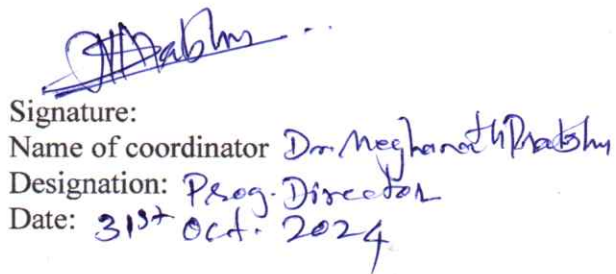 Signature:
Name of coordinator Dr. Meghanath Prabhu
Designation: Prog. Director
Date: 31st Oct. 2024